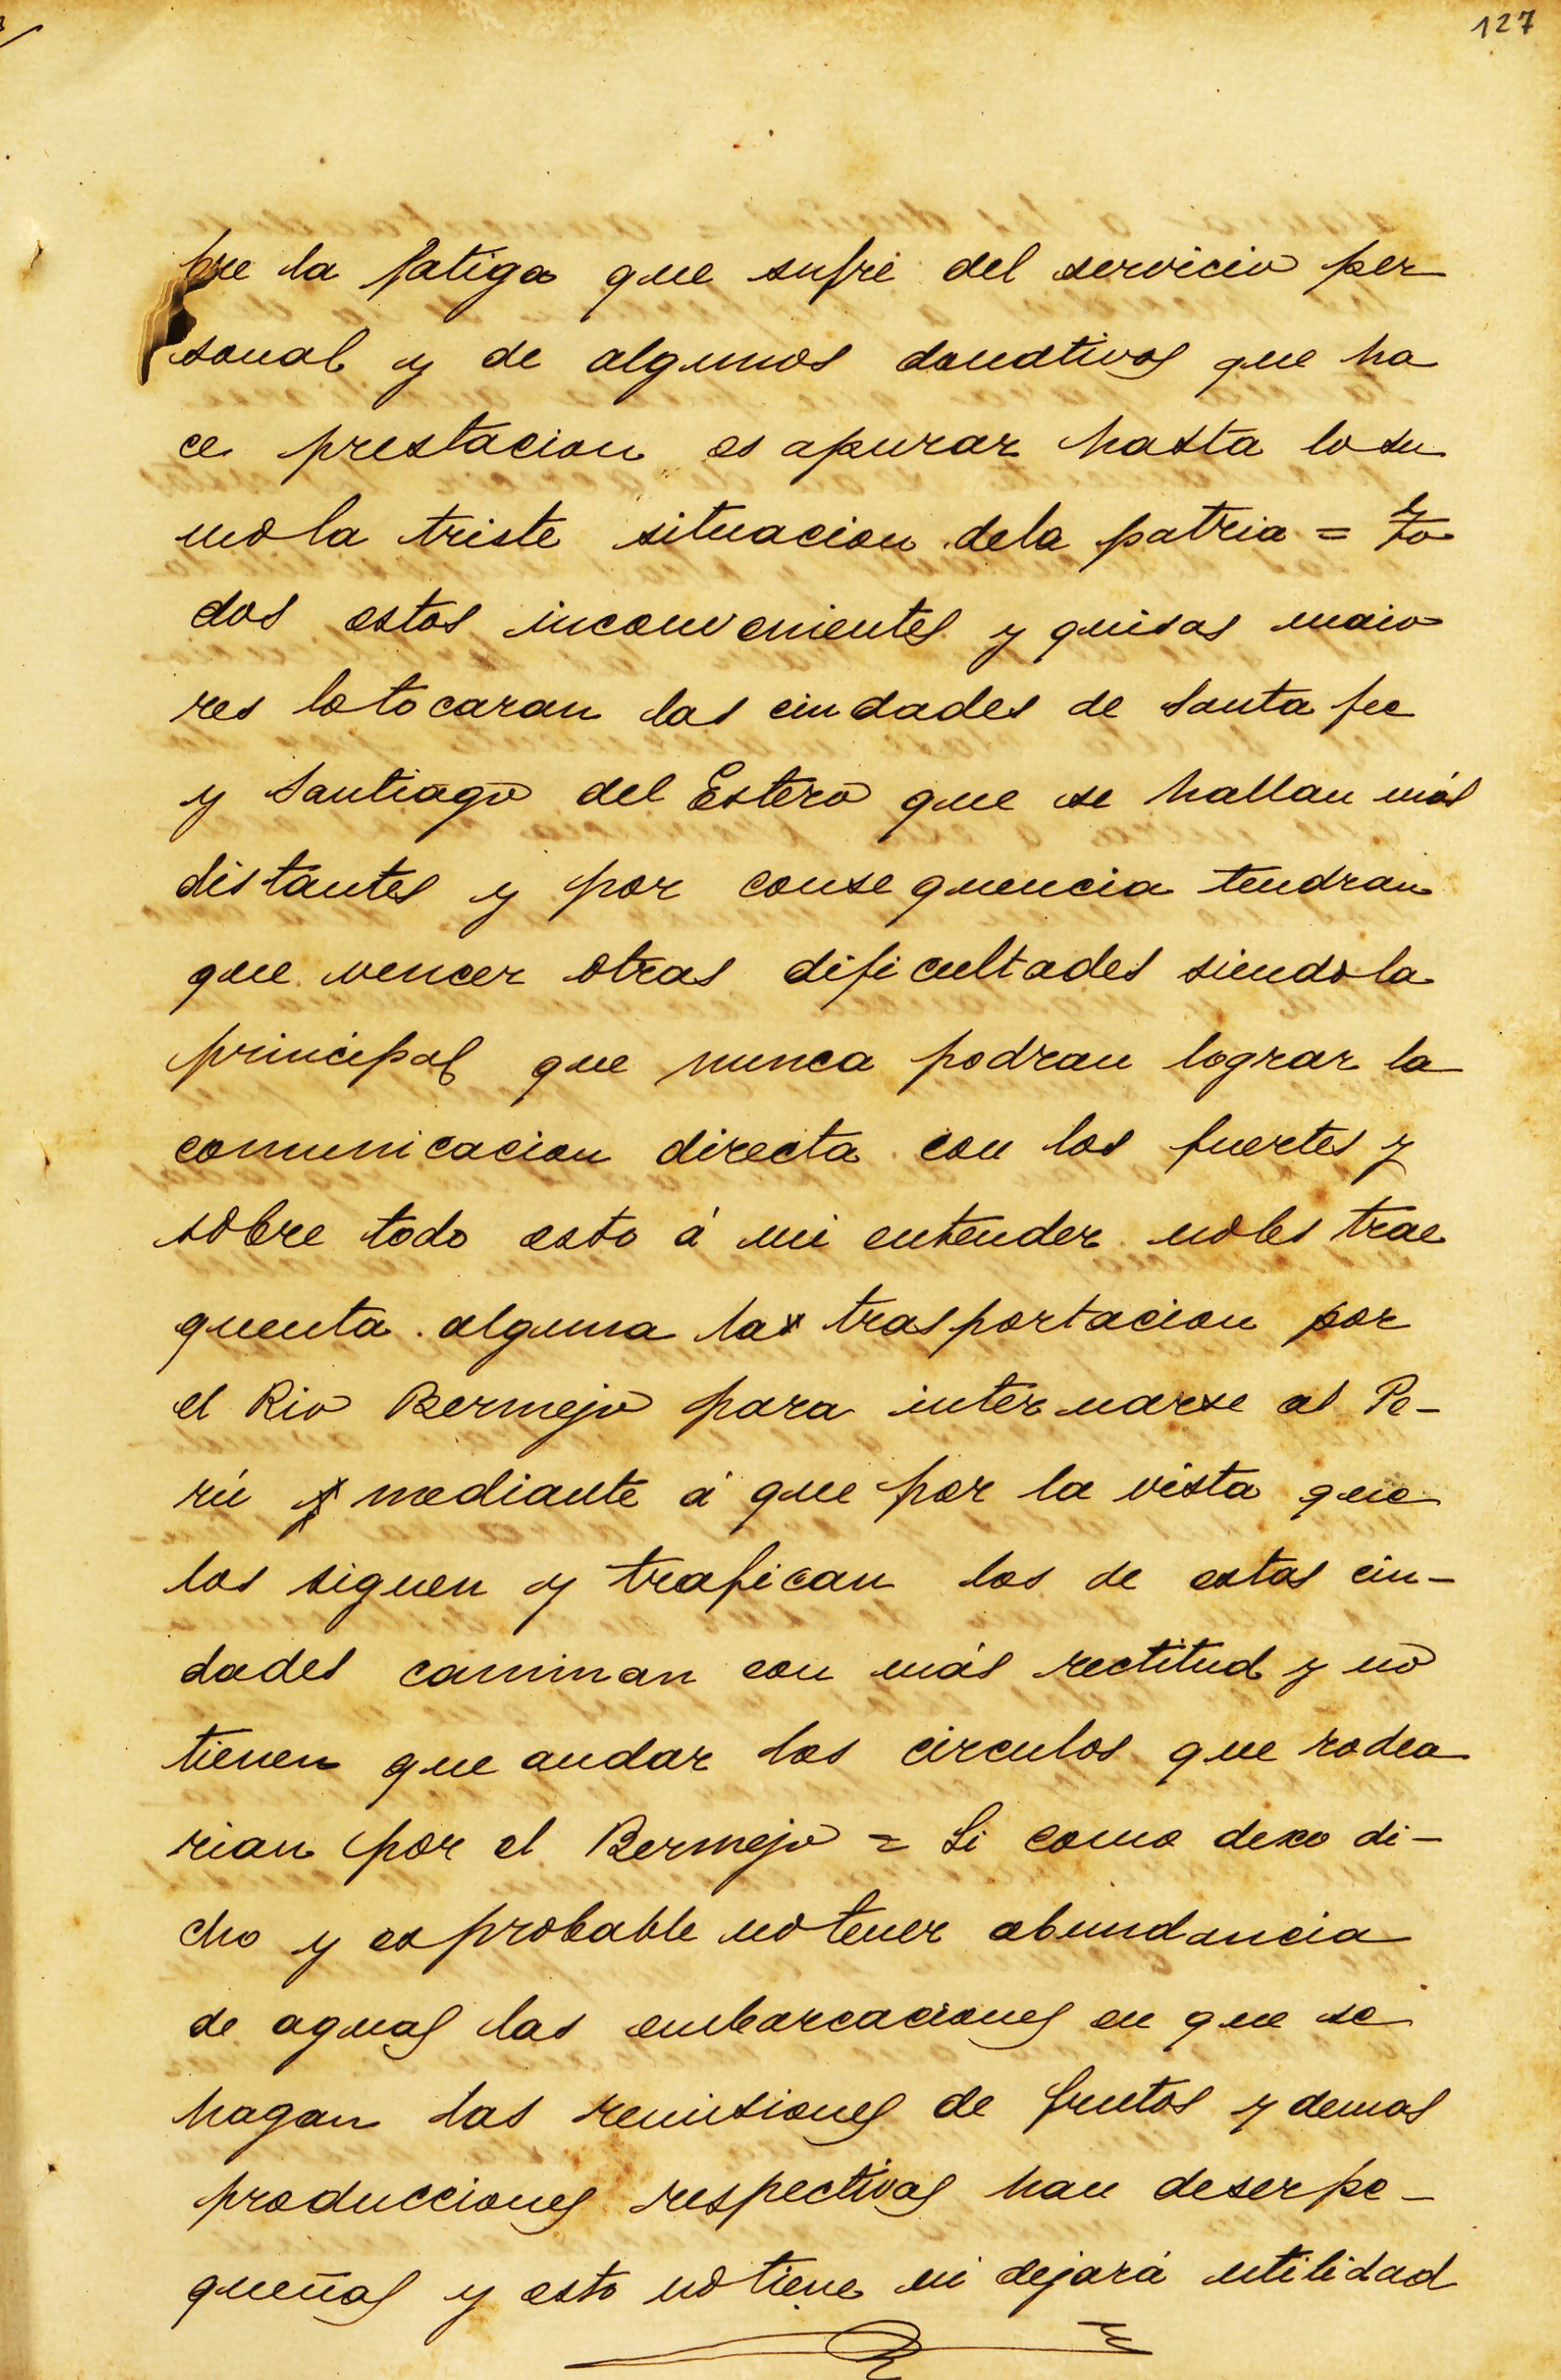 127
bre la fatiga que sufre del servicio per
sonal y de algunos donativos que ha
ce prestacion es apurar hasta lo su
mo la triste situacion dela patria = to
dos estos inconvenientes y quisas maio
res lo tocaran las ciudades de Santa fee
y Santiago del Estero que se hallan más
distantes y por consequencia tendran
que vencer otras dificultades siendo la
principal que nunca podran lograr la
comunicacion directa con los fuertes y
sobre todo esto á mi entender no les trae
quenta alguna la trasportacion por
el Rio Bermejo para internarse al Pe-
rú mediante á que por la vista que
los siguen y trafican los de estas ciu-
dades caminan con más rectitud y no
tienen que andar los circulos que rodea
rian por el Bermejo = Si como dexo di-
cho y es probable no tener abundancia
de aguas las embarcaciones en que se
hagan las remisiones de frutos y demas
producciones respectivas han de ser pe-
queñas y esto no tiene ni dejará utilidad